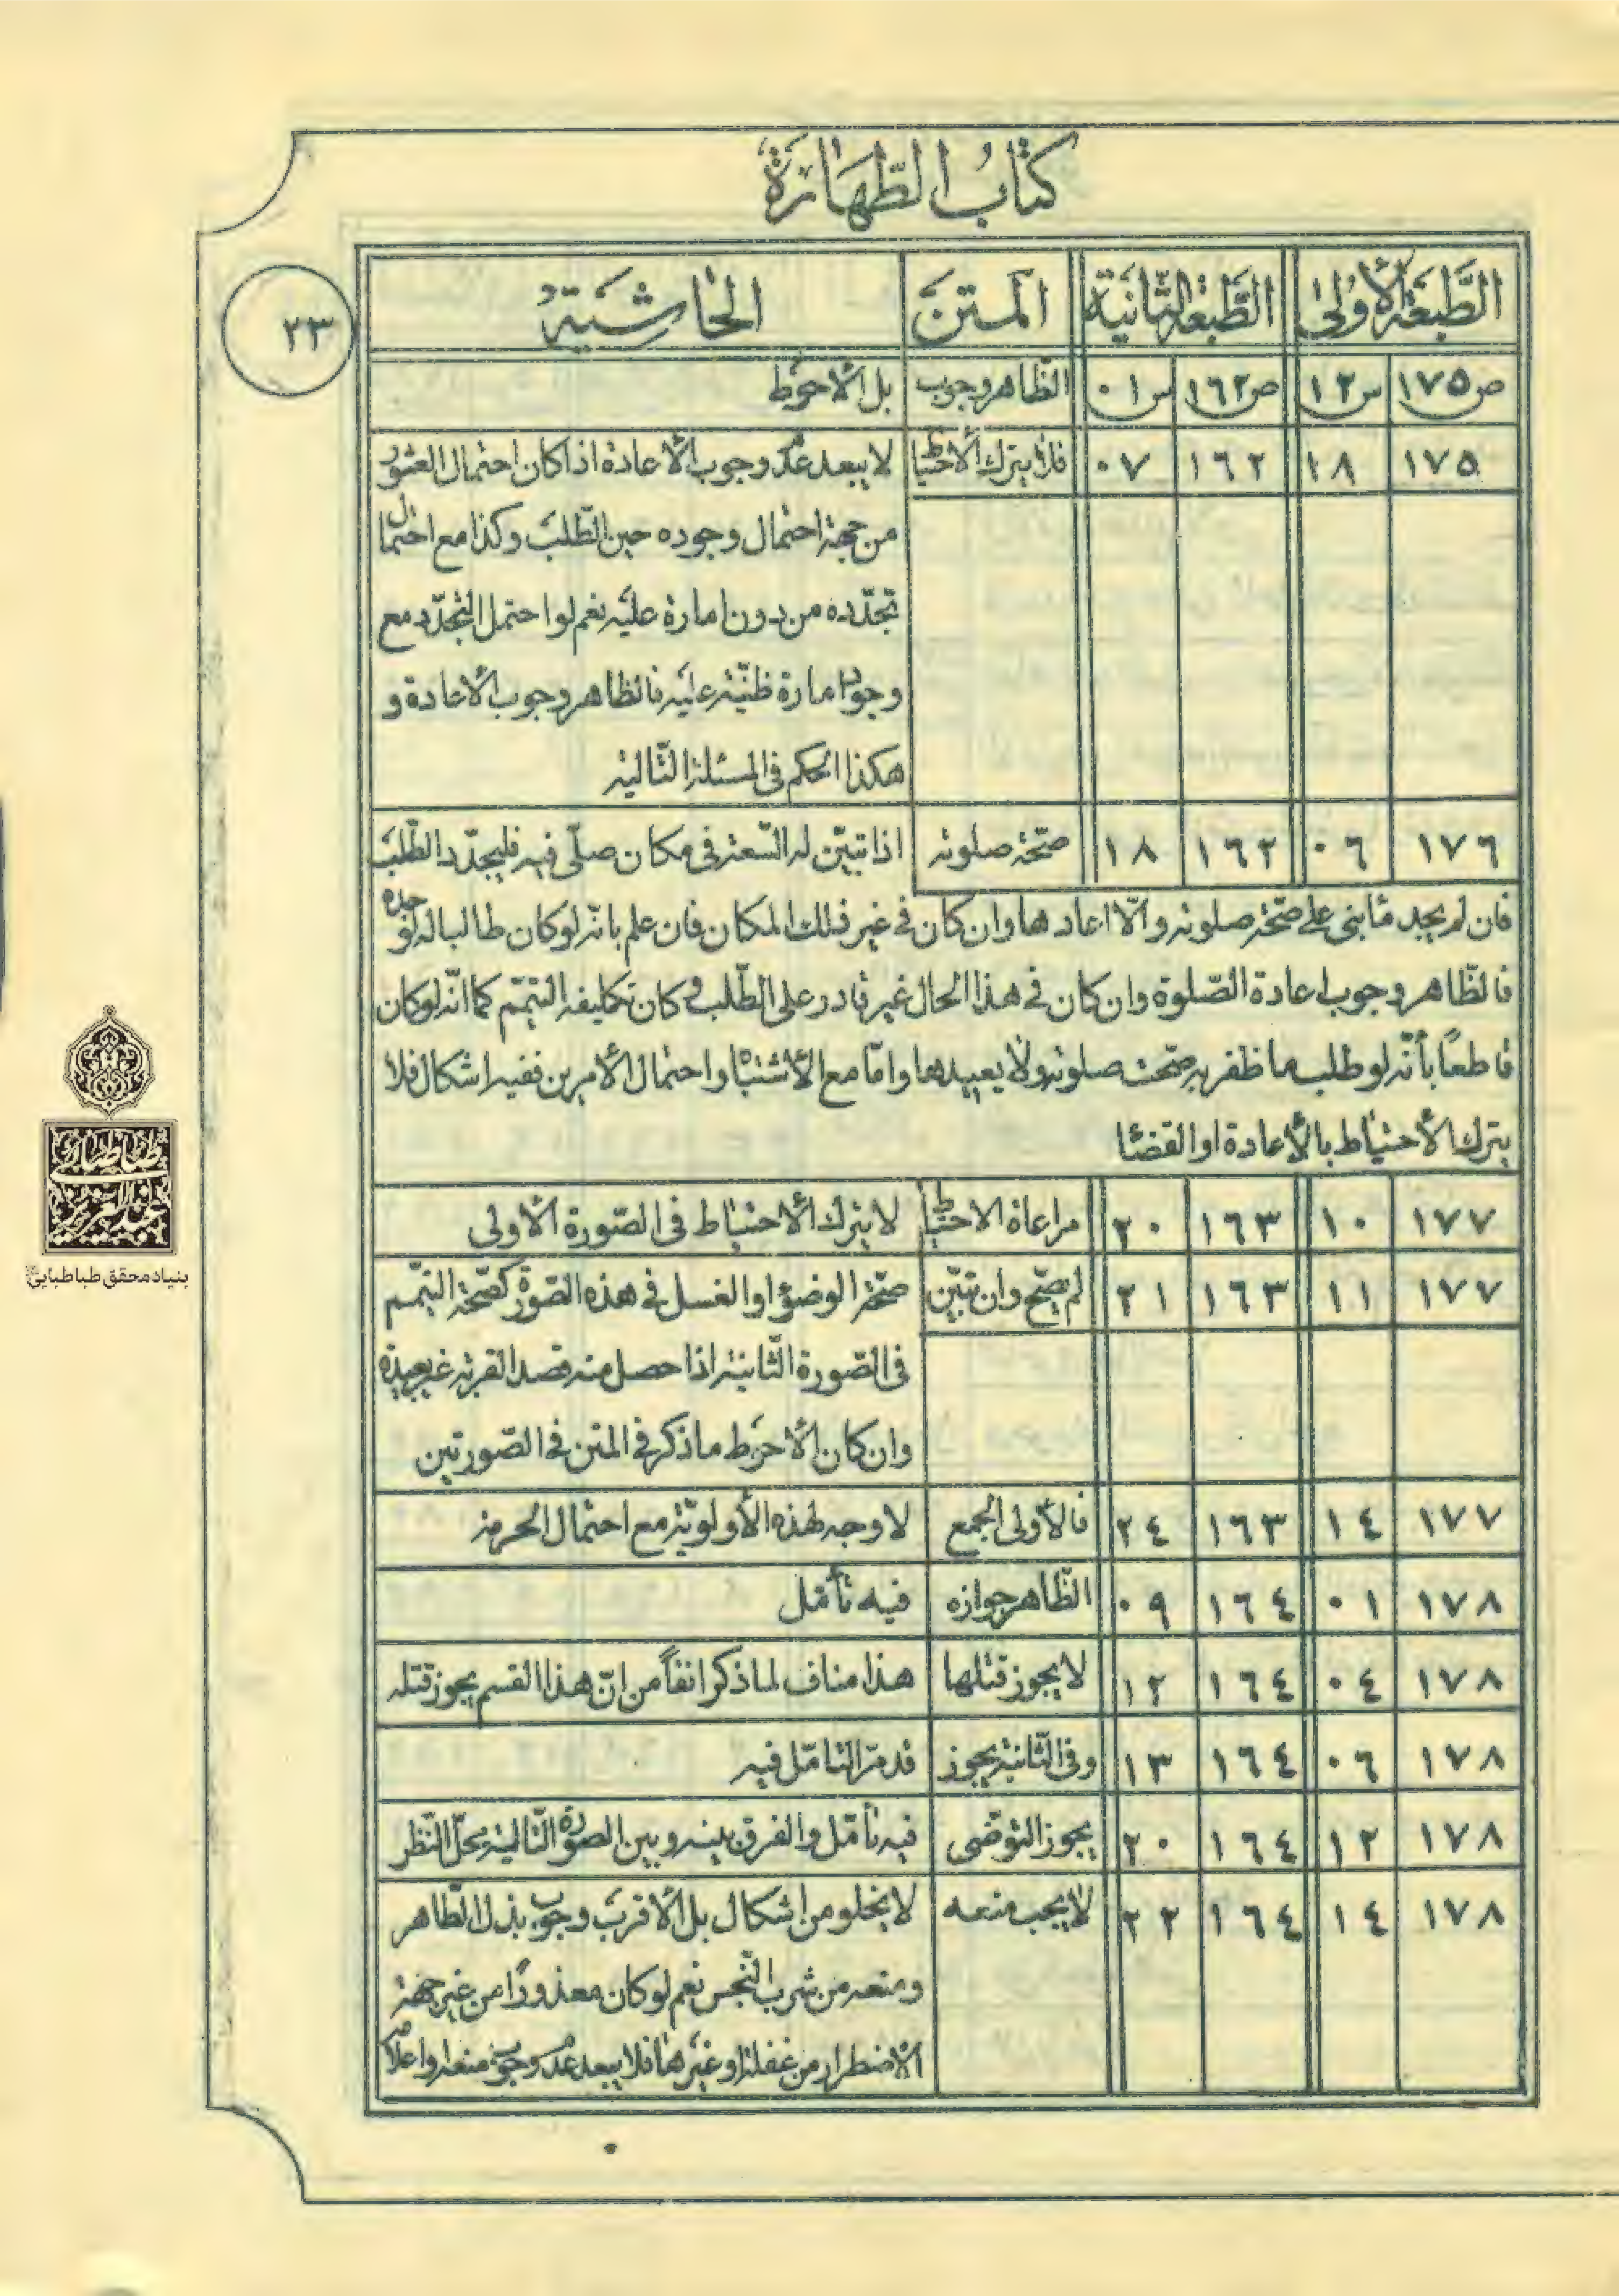 كتاب الطهارة
٢٣
الطّبعة الأولى الطّبعة الثّانية المتن الحاشية
ص١٧٥ س١٢ ص١٦٢ س٠١ الظاهر وجوب بل الأحوط
١٧٥ ١٨ ١٦٢ ٠٧ فلا يترك الأحتياط لا يبعد عدم وجوب الأعادة اذا كان احتمال العثور
من جهة احتمال وجوده حين الطّلب وكذا مع احتمال
تجدّده من دون امارة عليه نعم لو احتمل التجدّد مع
وجود امارة ظنّية عليه فالظاهر وجوب الأعادة و
هكذا الحكم فى المسئلة التّالية
١٧٦ ٠٦ ١٦٢ ١٨ صحّة صلوته اذا تبيّن له السّعة فى مكان صلّى فيه فليجدّد الطّلب
فان لم يجد ماء بنى على صحّة صلوته والّا اعادها وان كان فى غير ذلك المكان فان علم بانّه لو كان طالبا له لوجده
فالظّاهر وجوب اعادة الصّلوة وان كان فى هذا الحال غير قادر على الطّلب وكان تكليفه التيمّم كما انّه لو كان
قاطعًا بأنّه لو طلب ما ظفر به صحّت صلوته ولا يعيدها وامّا مع الأشتباه واحتمال الأمرين ففيه اشكال فلا
يترك الأحتياط بالأعادة او القضاء
١٧٧ ١٠ ١٦٣ ٢٠ مراعاة الاحتياط لا يترك الأحتياط فى الصّورة الأولى
١٧٧ ١١ ١٦٣ ٢١ لم يصحّ وان تبيّن صحّة الوضوء او الغسل فى هذه الصّورة كصحّة التيمّم
فى الصّورة الثّانية اذا حصل منه قصد القربة غير بعيدة
وان كان الأحوط ما ذكر فى المتن فى الصّورتين
١٧٧ ١٤ ١٦٣ ٢٤ فالأولى الجمع لا وجه لهذه الأولويّة مع احتمال الحرمة
١٧٨ ٠١ ١٦٤ ٠٩ الظّاهر جوازه فيه تأمّل
١٧٨ ٠٤ ١٦٤ ١٢ لا يجوز قتلها هذا مناف لما ذكر انفاً من انّ هذا القسم يجوز قتله
١٧٨ ٠٦ ١٦٤ ١٣ وفى الثّانية يجوز قد مرّ التامّل فيه
١٧٨ ١٢ ١٦٤ ٢٠ يجوز التوضّى فيه تأمّل والفرق بينه وبين الصّورة التّالية محلّ النّظر
١٧٨ ١٤ ١٦٤ ٢٢ لا يجب منعه لا يخلو من اشكال بل الأقرب وجوب بذل الطّاهر
ومنعه من شرب النّجس نعم لو كان معذورًا من غير جهة
الأضطرار من غفلة او غيرها فلا يبعد عدم وجوب منعه واعلامه
طباطبایی
بنیاد محقق طباطبایی